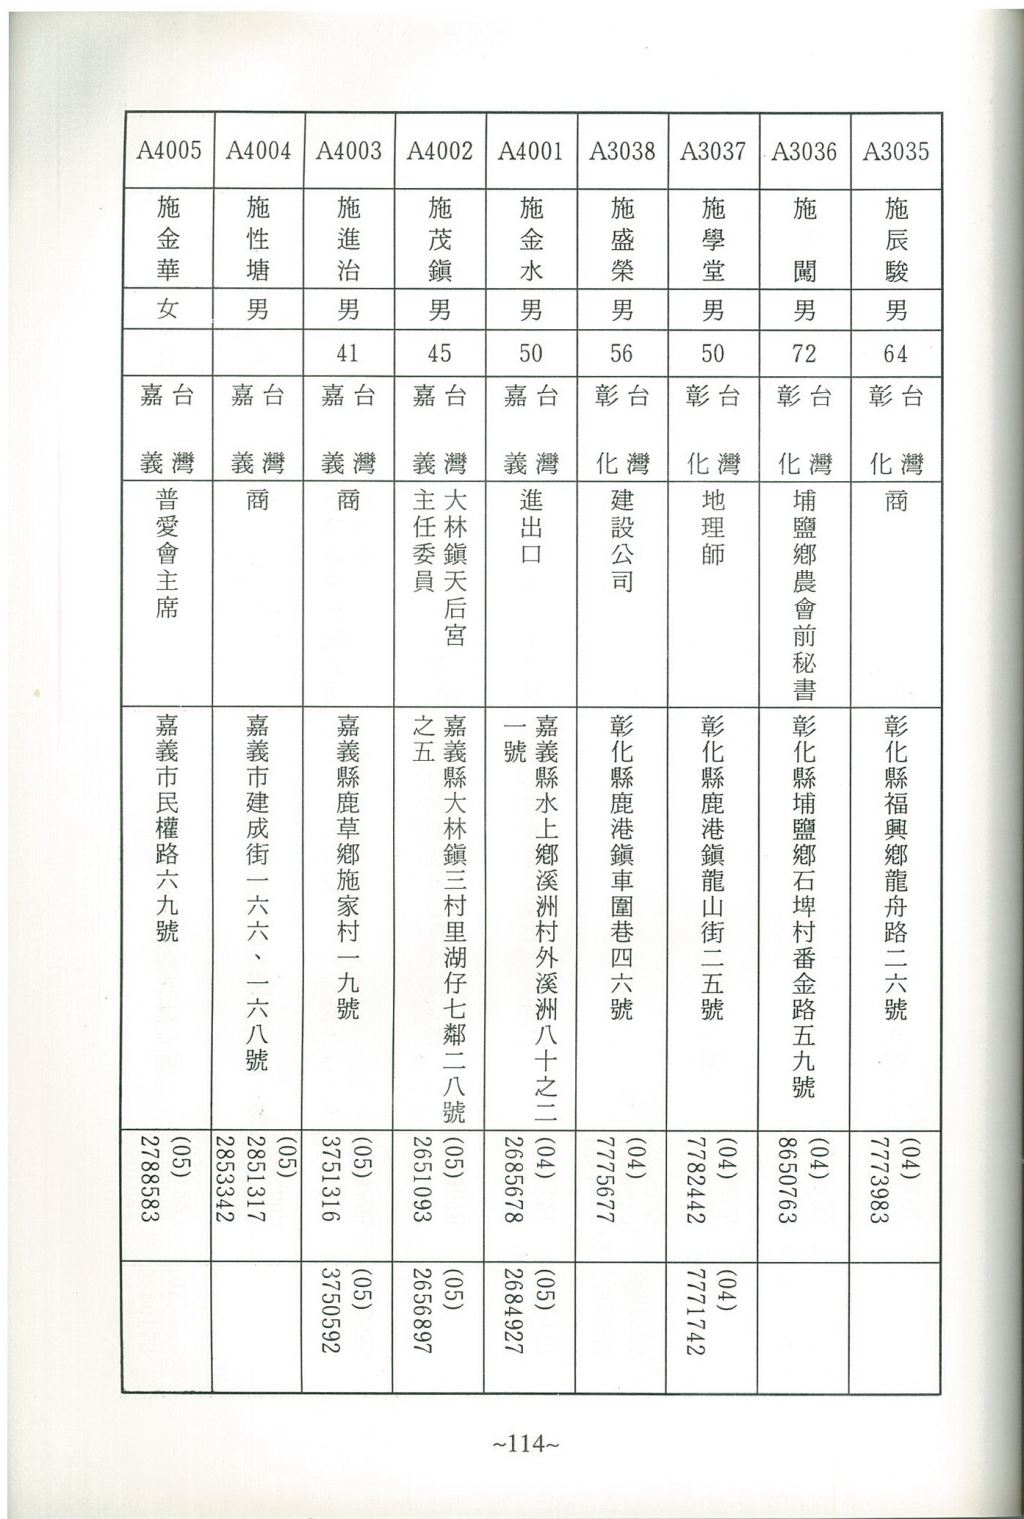 A3035
施辰駿
男
64
台灣
彰化
商
彰化縣福興鄉龍舟路二六號
(04)
7773983
A3036
施闖
男
72
台灣
彰化
埔鹽鄉農會前秘書
彰化縣埔鹽鄉石埤村番金路五九號
(04)
8650763
A3037
施學堂
男
50
台灣
彰化
地理師
彰化縣鹿港鎮龍山街二五號
(04)
7782442
(04)
7771742
A3038
施盛榮
男
56
台灣
彰化
建設公司
彰化縣鹿港鎮車圍巷四六號
(04)
7775677
A4001
施金水
男
50
台灣
嘉義
進出口
嘉義縣水上鄉溪洲村外溪洲八十之二
一號
(04)
2685678
(05)
2684927
A4002
施茂鎭
男
45
台灣
嘉義
大林鎭天后宮
主任委員
嘉義縣大林鎭三村里湖仔七鄰二八號
之五
(05)
2651093
(05)
2656897
A4003
施進治
男
41
台灣
嘉義
商
嘉義縣鹿草鄉施家村一九號
(05)
3751316
(05)
3750592
A4004
施性塘
男
台灣
嘉義
商
嘉義市建成街一六六、一六八號
(05)
2851317
2853342
A4005
施金華
女
台灣
嘉義
普愛會主席
嘉義市民權路六九號
(05)
2788583
~114~